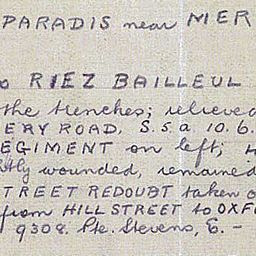 PARADIS near MER
RIEZ BAILLEUL
the trenches; relieved
ERY ROAD. S.5.a.10.6.
EGIMENT on left; 4
tly wounded, remained
TREET REDOUBT taken o
from HILL STREET to OXFO
9308. Pte. Stevens, E. -